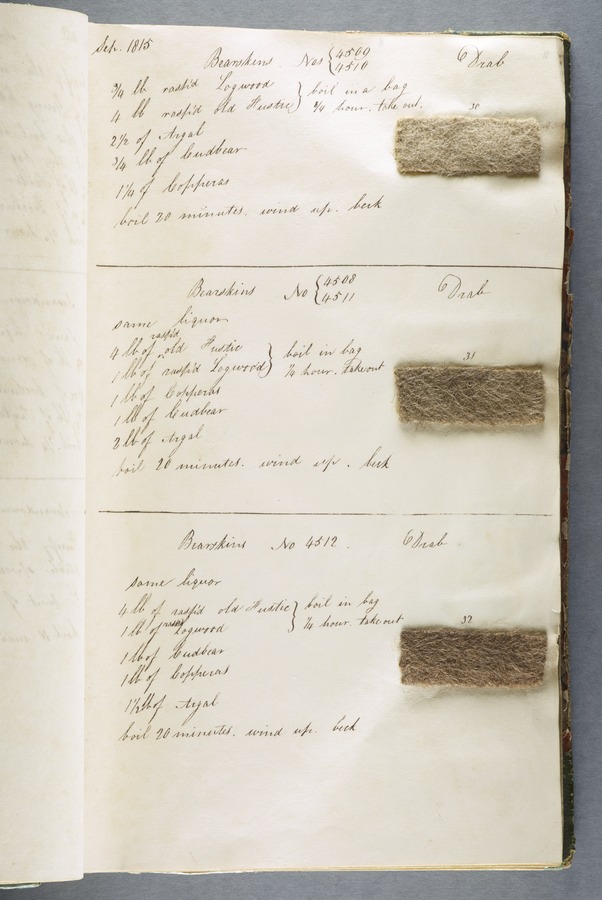 Sep. 1815
Bearskins Nos { 4509 4510 Drab
3/4 lb raspd Logwood } boil in a bag
4 lb raspd old Fustic } 3/4 hour. take out.
30
2 1/2 of Argal
3/4 lb of Cudbear
1 1/4 of Copperas
boil 20 minutes. wind up. beck
Bearskins No { 4508 4511 Drab
same liquor
raspd
4 lb of old Fustic } boil in bag
1 lb of raspd Logwood } 3/4 hour. take out
31
1 lb of Copperas
1 lb of Cudbear
2 lb of Argal
boil 20 minutes. wind up. beck
Bearskins No 4512. Drab
same liquor
4 lb of raspd old Fustic } boil in bag
1 lb of raspd Logwood } 3/4 hour. take out
32
1 lb of Cudbear
1 lb of Copperas
1 1/2 lb of Argal
boil 20 minutes. wind up. beck